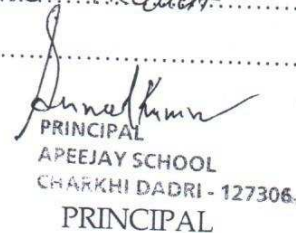 PRINCIPAL
APEEJAY SCHOOL
CHARKHI DADRI - 127306.
PRINCIPAL